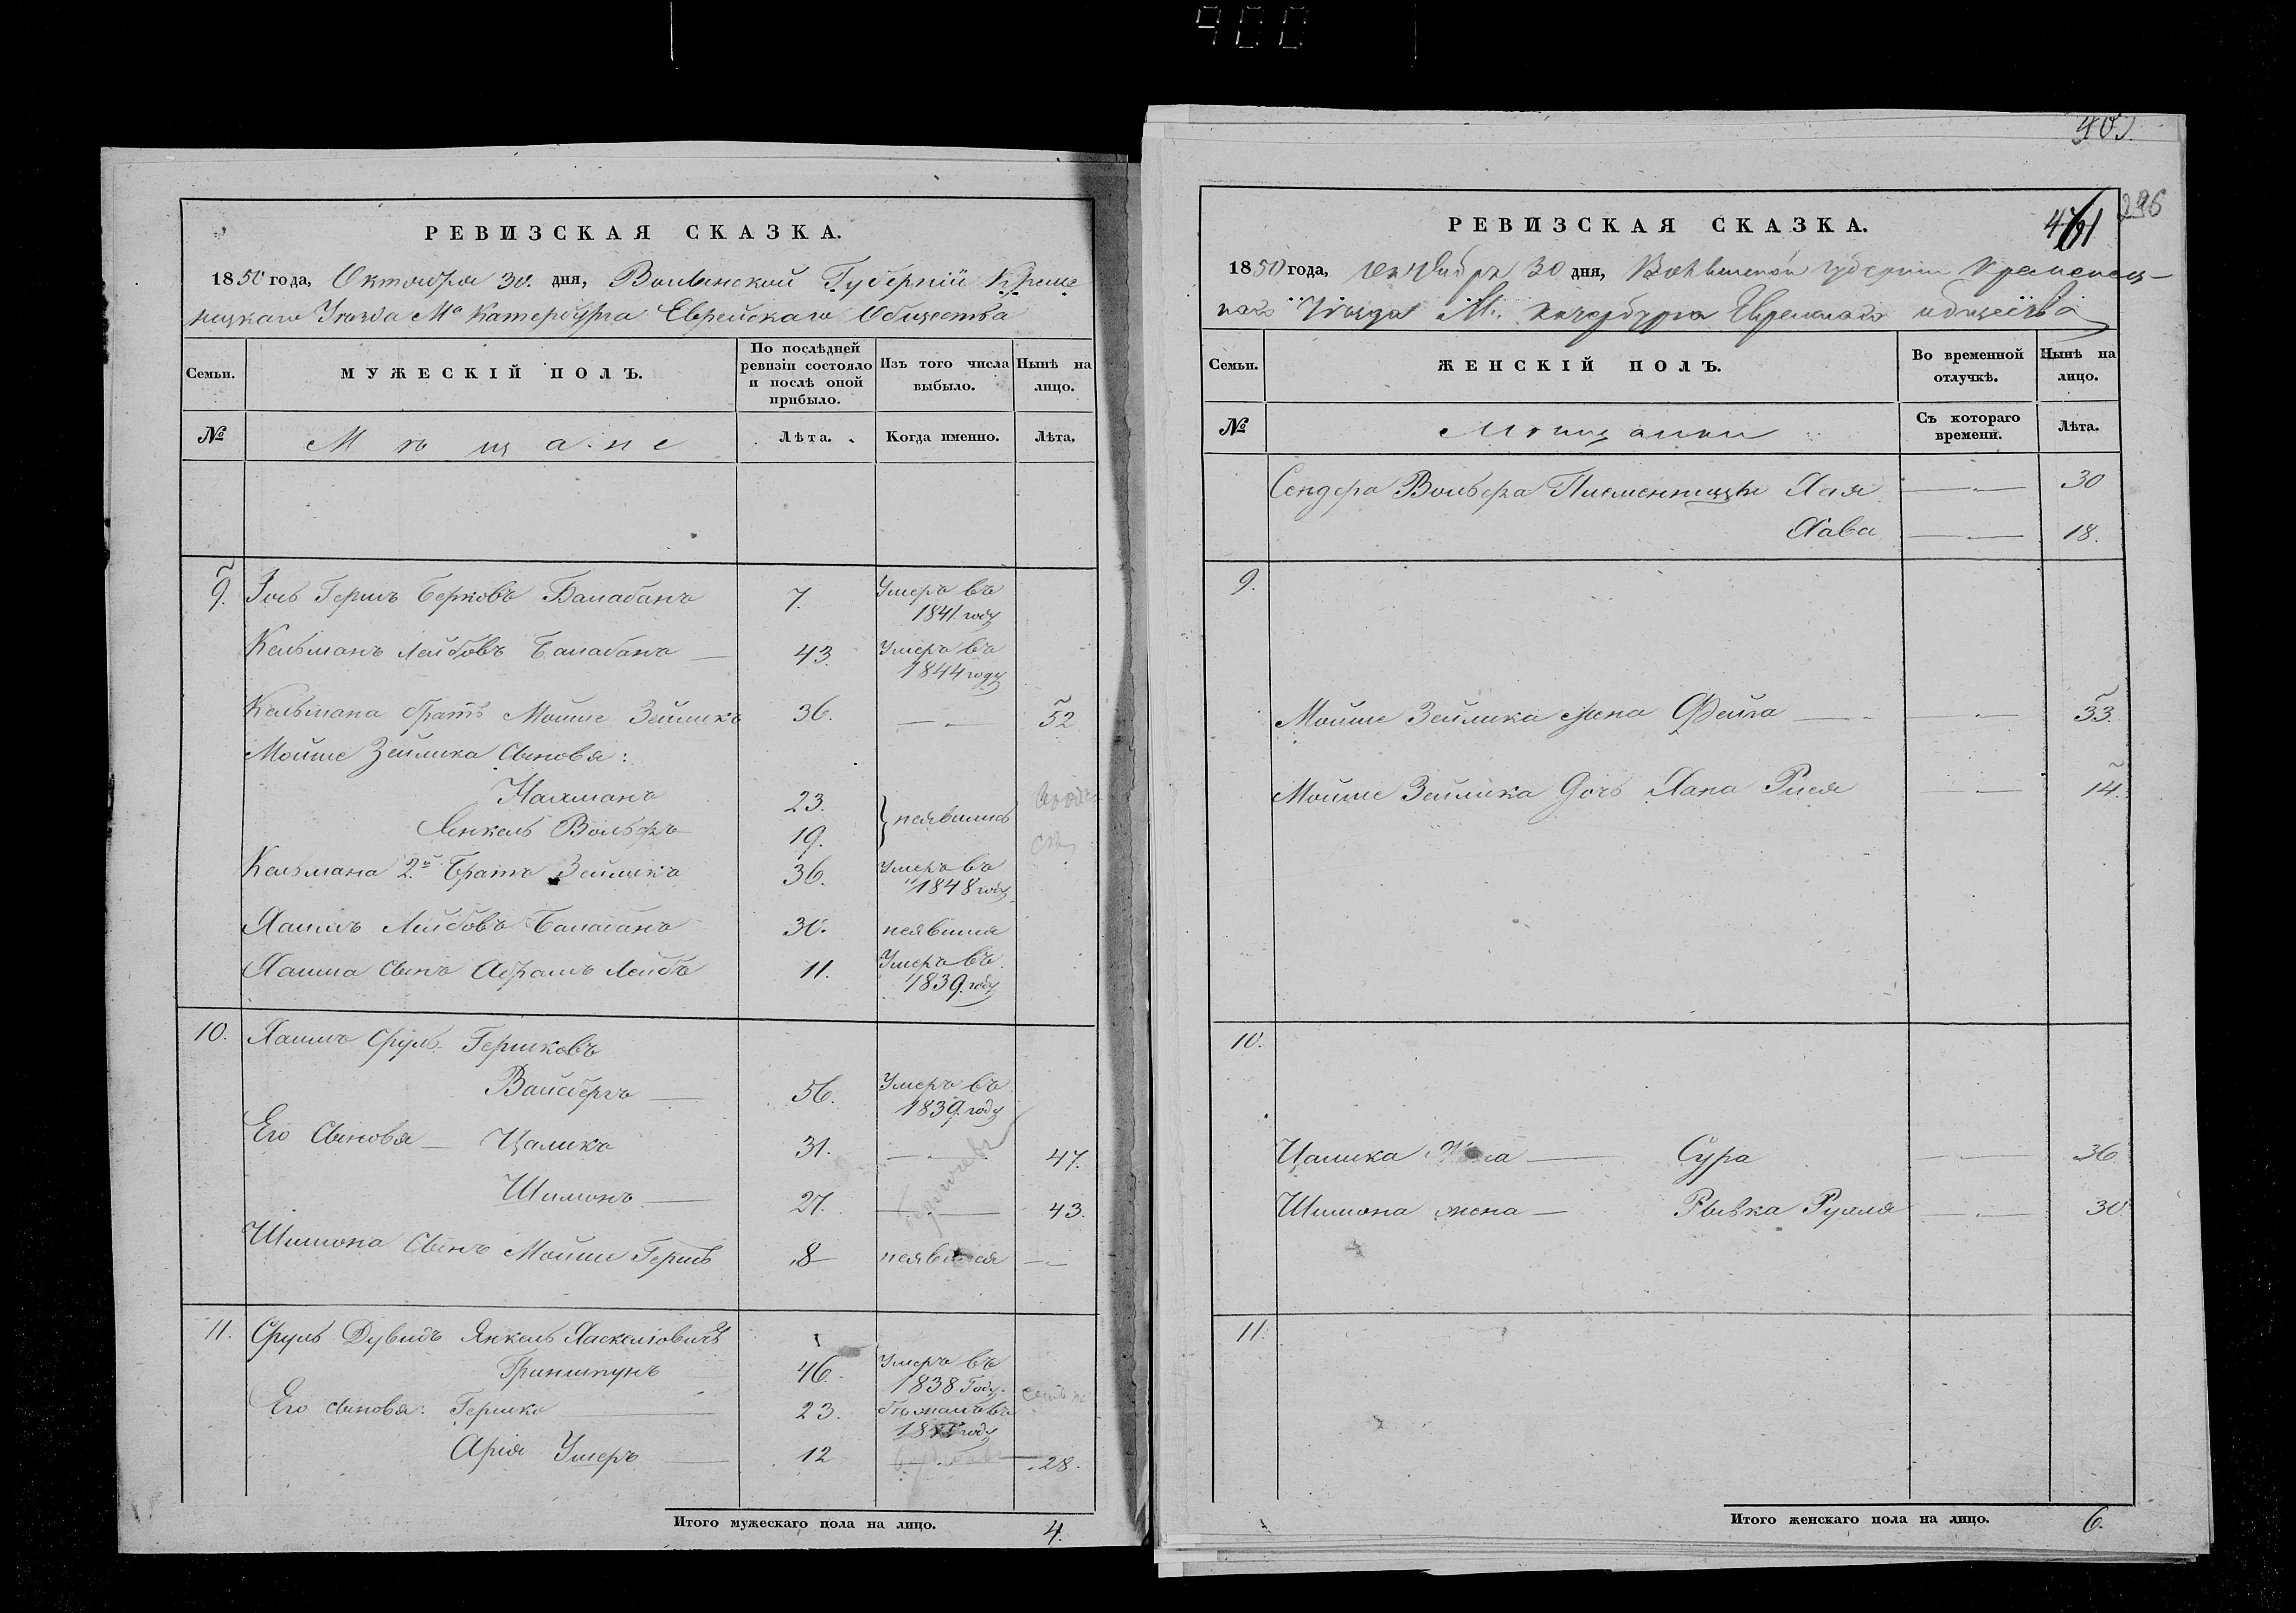 900
РЕВИЗСКАЯ СКАЗКА.
1850 года, Октября 30. дня, Волынской Губернiи Креме
нецкаго Уѣзда Мѣ Катербурга Еврейскаго Общества
Семьи.
МУЖЕСКІЙ ПОЛЪ.
По послѣдней ревизіи состояло и послѣ оной прибыло.
Изъ того числа выбыло.
Нынѣ на лицо.
№
Мѣщане
Лѣта.
Когда именно.
Лѣта.
9. Іось Гершъ Берковъ Балабанъ 7. Умеръ въ
1841 году
Кельманъ Лейбовъ Балабанъ — 43 Умеръ въ
1844 году
Кельмана братъ Мойше Зейликъ 36. — 52
Мойше Зейлика Сыновья:
Нахманъ 23.
Янкель Вольфъ 19. } неявились
Кельмана 2й Братъ Зейликъ 36. Умеръ въ
1848 году
Хаимъ Лейбовъ Балабанъ 30. неявился
Хаима Сынъ Абрамъ Лейбъ 11. Умеръ въ
1839. году
10. Хаимъ Сруль Гершковъ
Вайсбергъ — 56. Умеръ въ
1839. году
Его Сыновья — Цаликъ 31. — 47.
Шимонъ — 27. — 43.
Шимона Сынъ Мойше Гершъ 8 неявился —
11. Сруль Дувидъ Янкель Хаскелiовичъ
Гринштунъ 46. Умеръ въ
1838 Году.
Его сыновья: Гершко 23.
году
Арія Умеръ — 12 — 28.
Итого мужескаго пола на лицо. 4.
296
461
РЕВИЗСКАЯ СКАЗКА.
1850 года, Октября 30 дня, Волынской губернии Кременец-
каго Уѣзда М. Катербурга Еврейскаго общества
Семьи.
ЖЕНСКІЙ ПОЛЪ.
Во временной отлучкѣ.
Нынѣ на лицо.
№
Мѣщанки
Съ котораго времени.
Лѣта.
Сендера Вольфа Племенницы Хая — 30
Хава — 18.
9.
Мойше Зейлика жена Фейга — 33.
Мойше Зейлика Дочь Хана Рися — 14.
10.
Цалика Жена — Сура — 36
Шимона жена — Рывка Рухля — 30.
11.
Итого женскаго пола на лицо. 6.